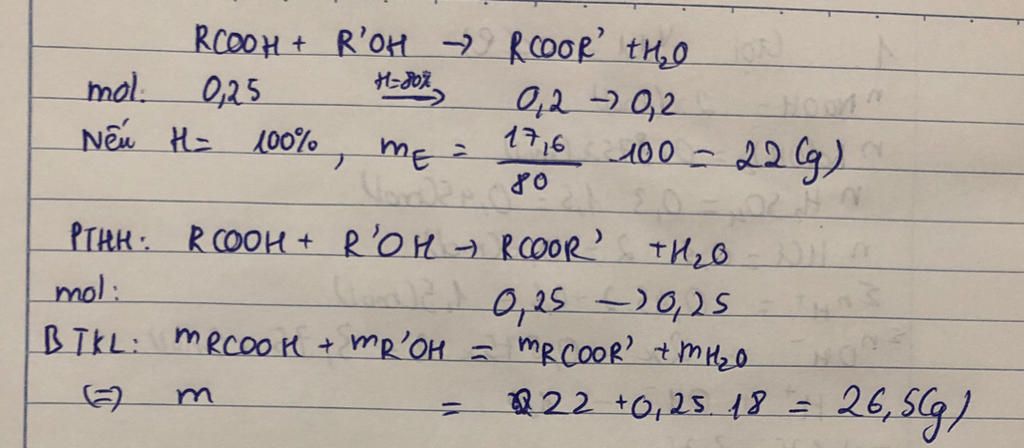 RCOOH + R'OH → RCOOR' + H₂O
mol: 0,25 H=80% → 0,2 → 0,2
Nếu H = 100%, mE = 17,6/80 . 100 = 22 (g)
PTHH: RCOOH + R'OH → RCOOR' + H₂O
mol: 0,25 → 0,25
BTKL: mRCOOH + mR'OH = mRCOOR' + mH₂O
(=) m = 22 + 0,25 . 18 = 26,5 (g)